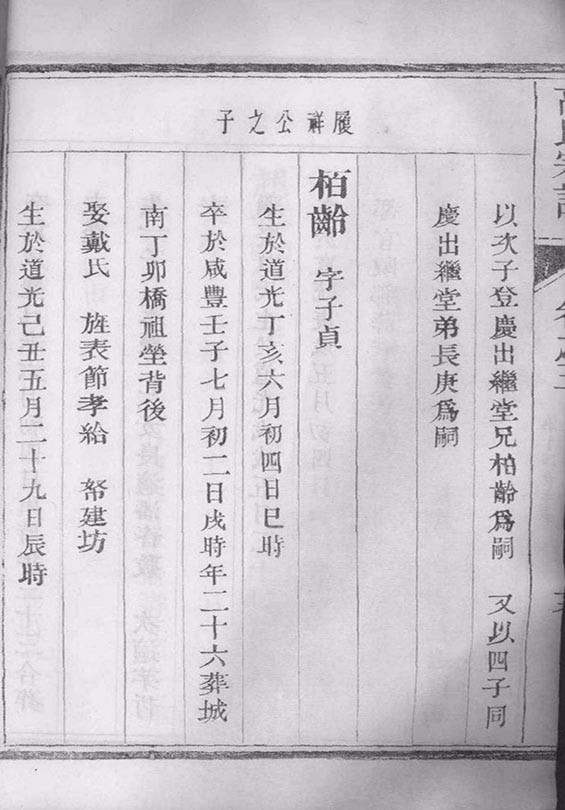 履祥公之子
以次子登慶出繼堂兄柏齡爲嗣 又以四子同
慶出繼堂弟長庚爲嗣
柏齡 字子貞
生於道光丁亥六月初四日巳時
卒於咸豐壬子七月初二日戌時年二十六葬城
南丁卯橋祖塋背後
娶戴氏 旌表節孝給 帑建坊
生於道光己丑五月二十九日辰時